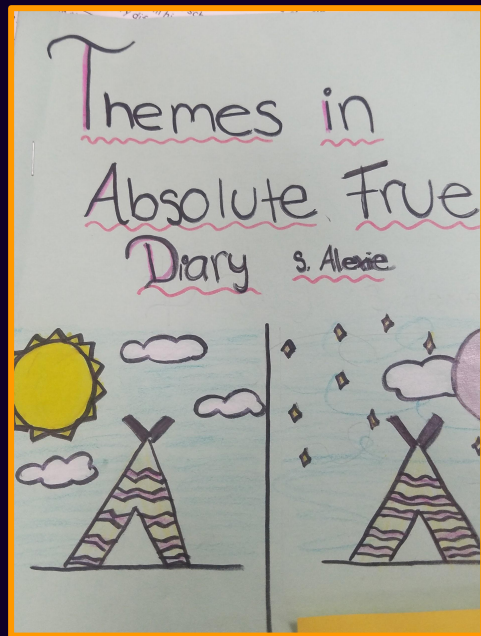 Themes in
Absolute True
Diary S. Alexie